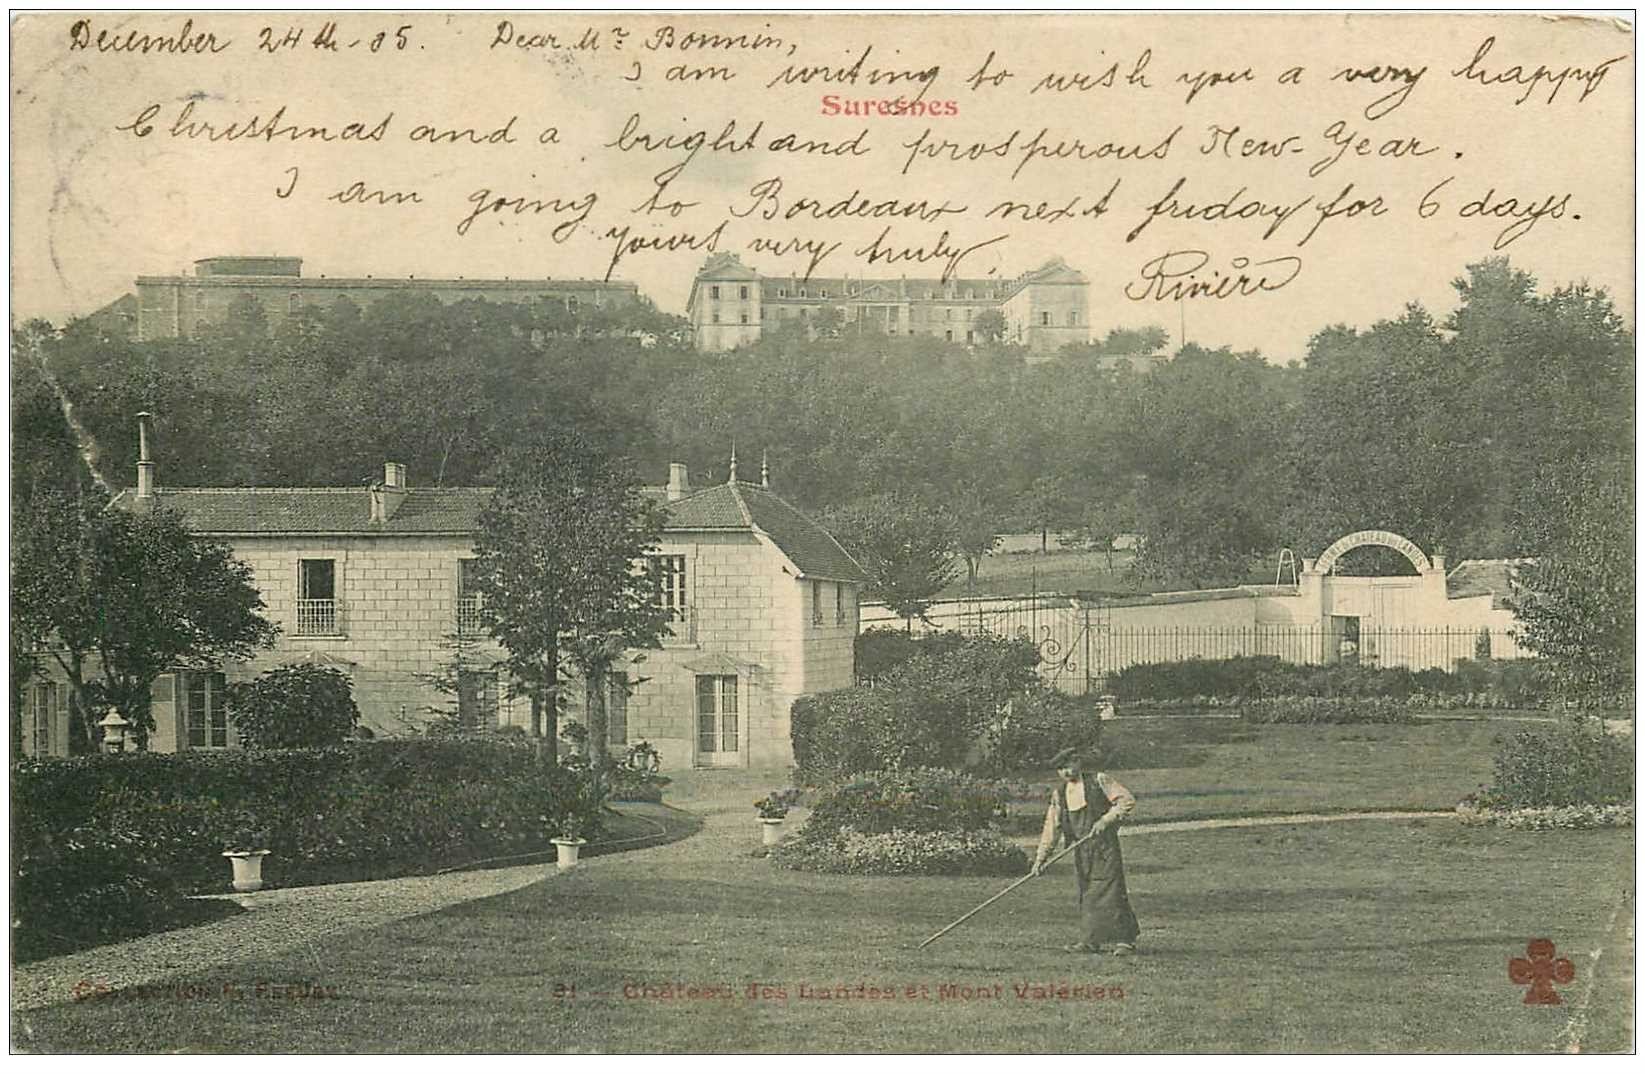 December 24th - 05. Dear Mr Bonnin,
I am writing to wish you a very happy
Suresnes
Christmas and a bright and prosperous New-Year.
I am going to Bordeaux next friday for 6 days.
yours very truly,
Rivière
CHATEAU DES LANDES
31 — Château des Landes et Mont Valérien